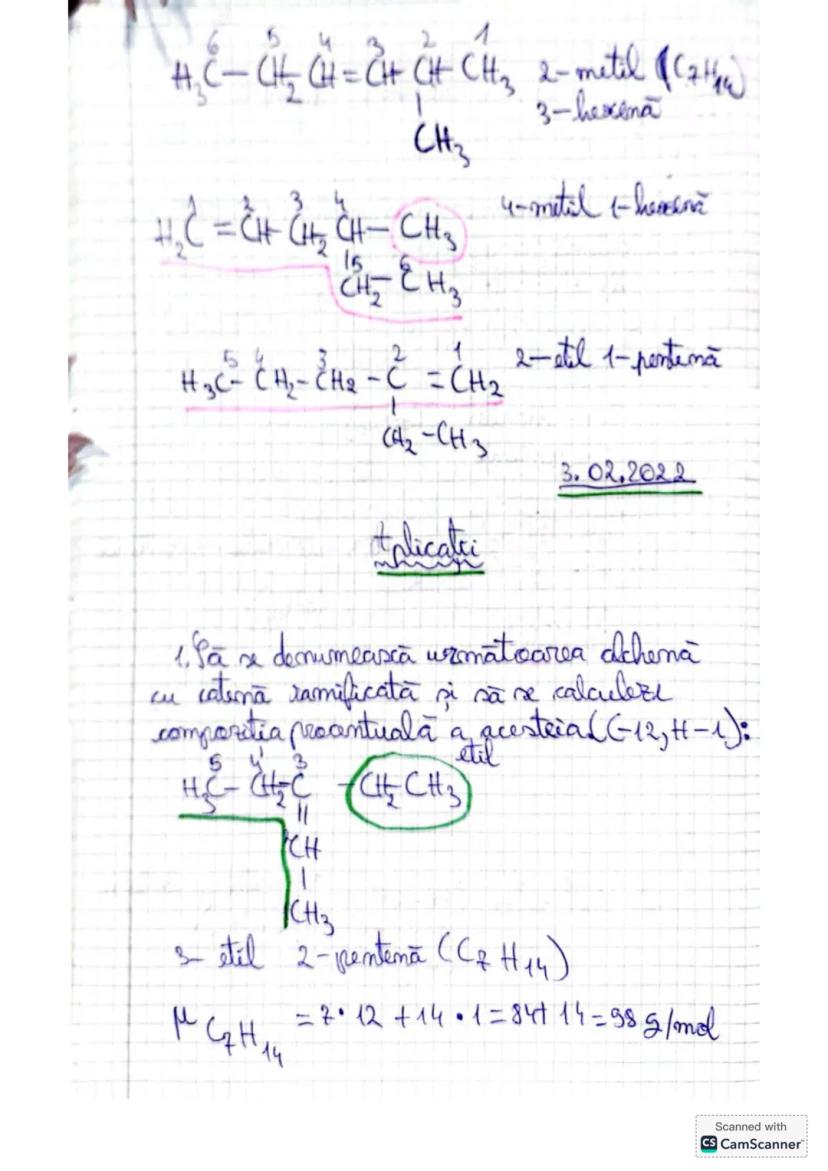 6 5 4 3 2 1
H₃C – CH₂ CH = CH CH CH₃ 2-metil (C₇H₁₄)
| 3-hexenă
CH₃
1 2 3 4 4-metil 1-hexenă
H₂C = CH CH₂ CH – CH₃
|5 6
CH₂ – CH₃
5 4 3 2 1 2-etil 1-pentenă
H₃C – CH₂ – CH₂ – C = CH₂
|
CH₂ – CH₃
3.02.2022
Aplicații
1. Să se denumească următoarea alchenă
cu catenă ramificată și să se calculeze
compoziția procentuală a acesteia (C-12, H-1):
5 4 3 etil
H₃C – CH₂ – C – CH₂ CH₃
||
CH
|
CH₃
3-etil 2-pentenă (C₇H₁₄)
μ C₇H₁₄ = 7 · 12 + 14 · 1 = 84 + 14 = 98 g/mol
Scanned with
CS CamScanner